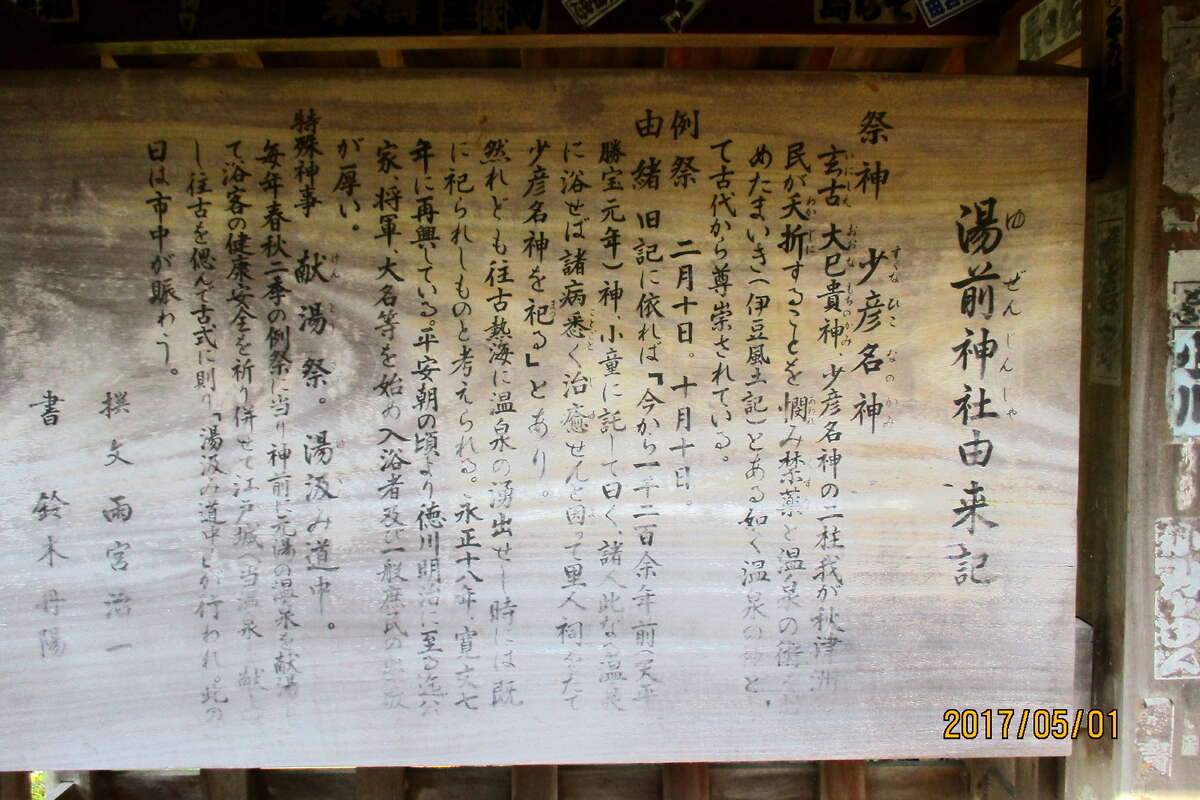 湯前神社由来記
祭神 少彦名神
玄古 大巳貴神、少彦名神の二柱我が秋津洲
民が夭折することを憫み禁薬と温泉の術
めたまいき(伊豆風土記)とある如く温泉の
て古代から尊崇されている。
例祭 二月十日。十月十日。
由緒 旧記に依れば「今から一千二百余年前(天平
勝宝元年)神、小童に託して曰く、諸人此な温泉
に浴せば諸病悉く治癒せんと因って里人祠をたて
少彦名神を祀る」とあり。
然れども往古熱海に温泉の湧出せし時には既
に祀られしものと考えられる。永正十八年、寛文七
年に再興している。平安朝の頃より徳川明治に至る迄公
家、将軍、大名等を始め入浴者及び一般庶民の崇敬
が厚い。
特殊神事 献湯祭。湯汲み道中。
毎年春秋二季の例祭に当り神前に元湯の温泉を献湯し
て浴客の健康安全を祈り併せて江戸城へ当温泉献
し往古を偲んで古式に則り「湯汲み道中」が行われ、此の
日は市中が賑わう。
撰文 雨宮治一
書 鈴木丹陽
小川
2017/05/01